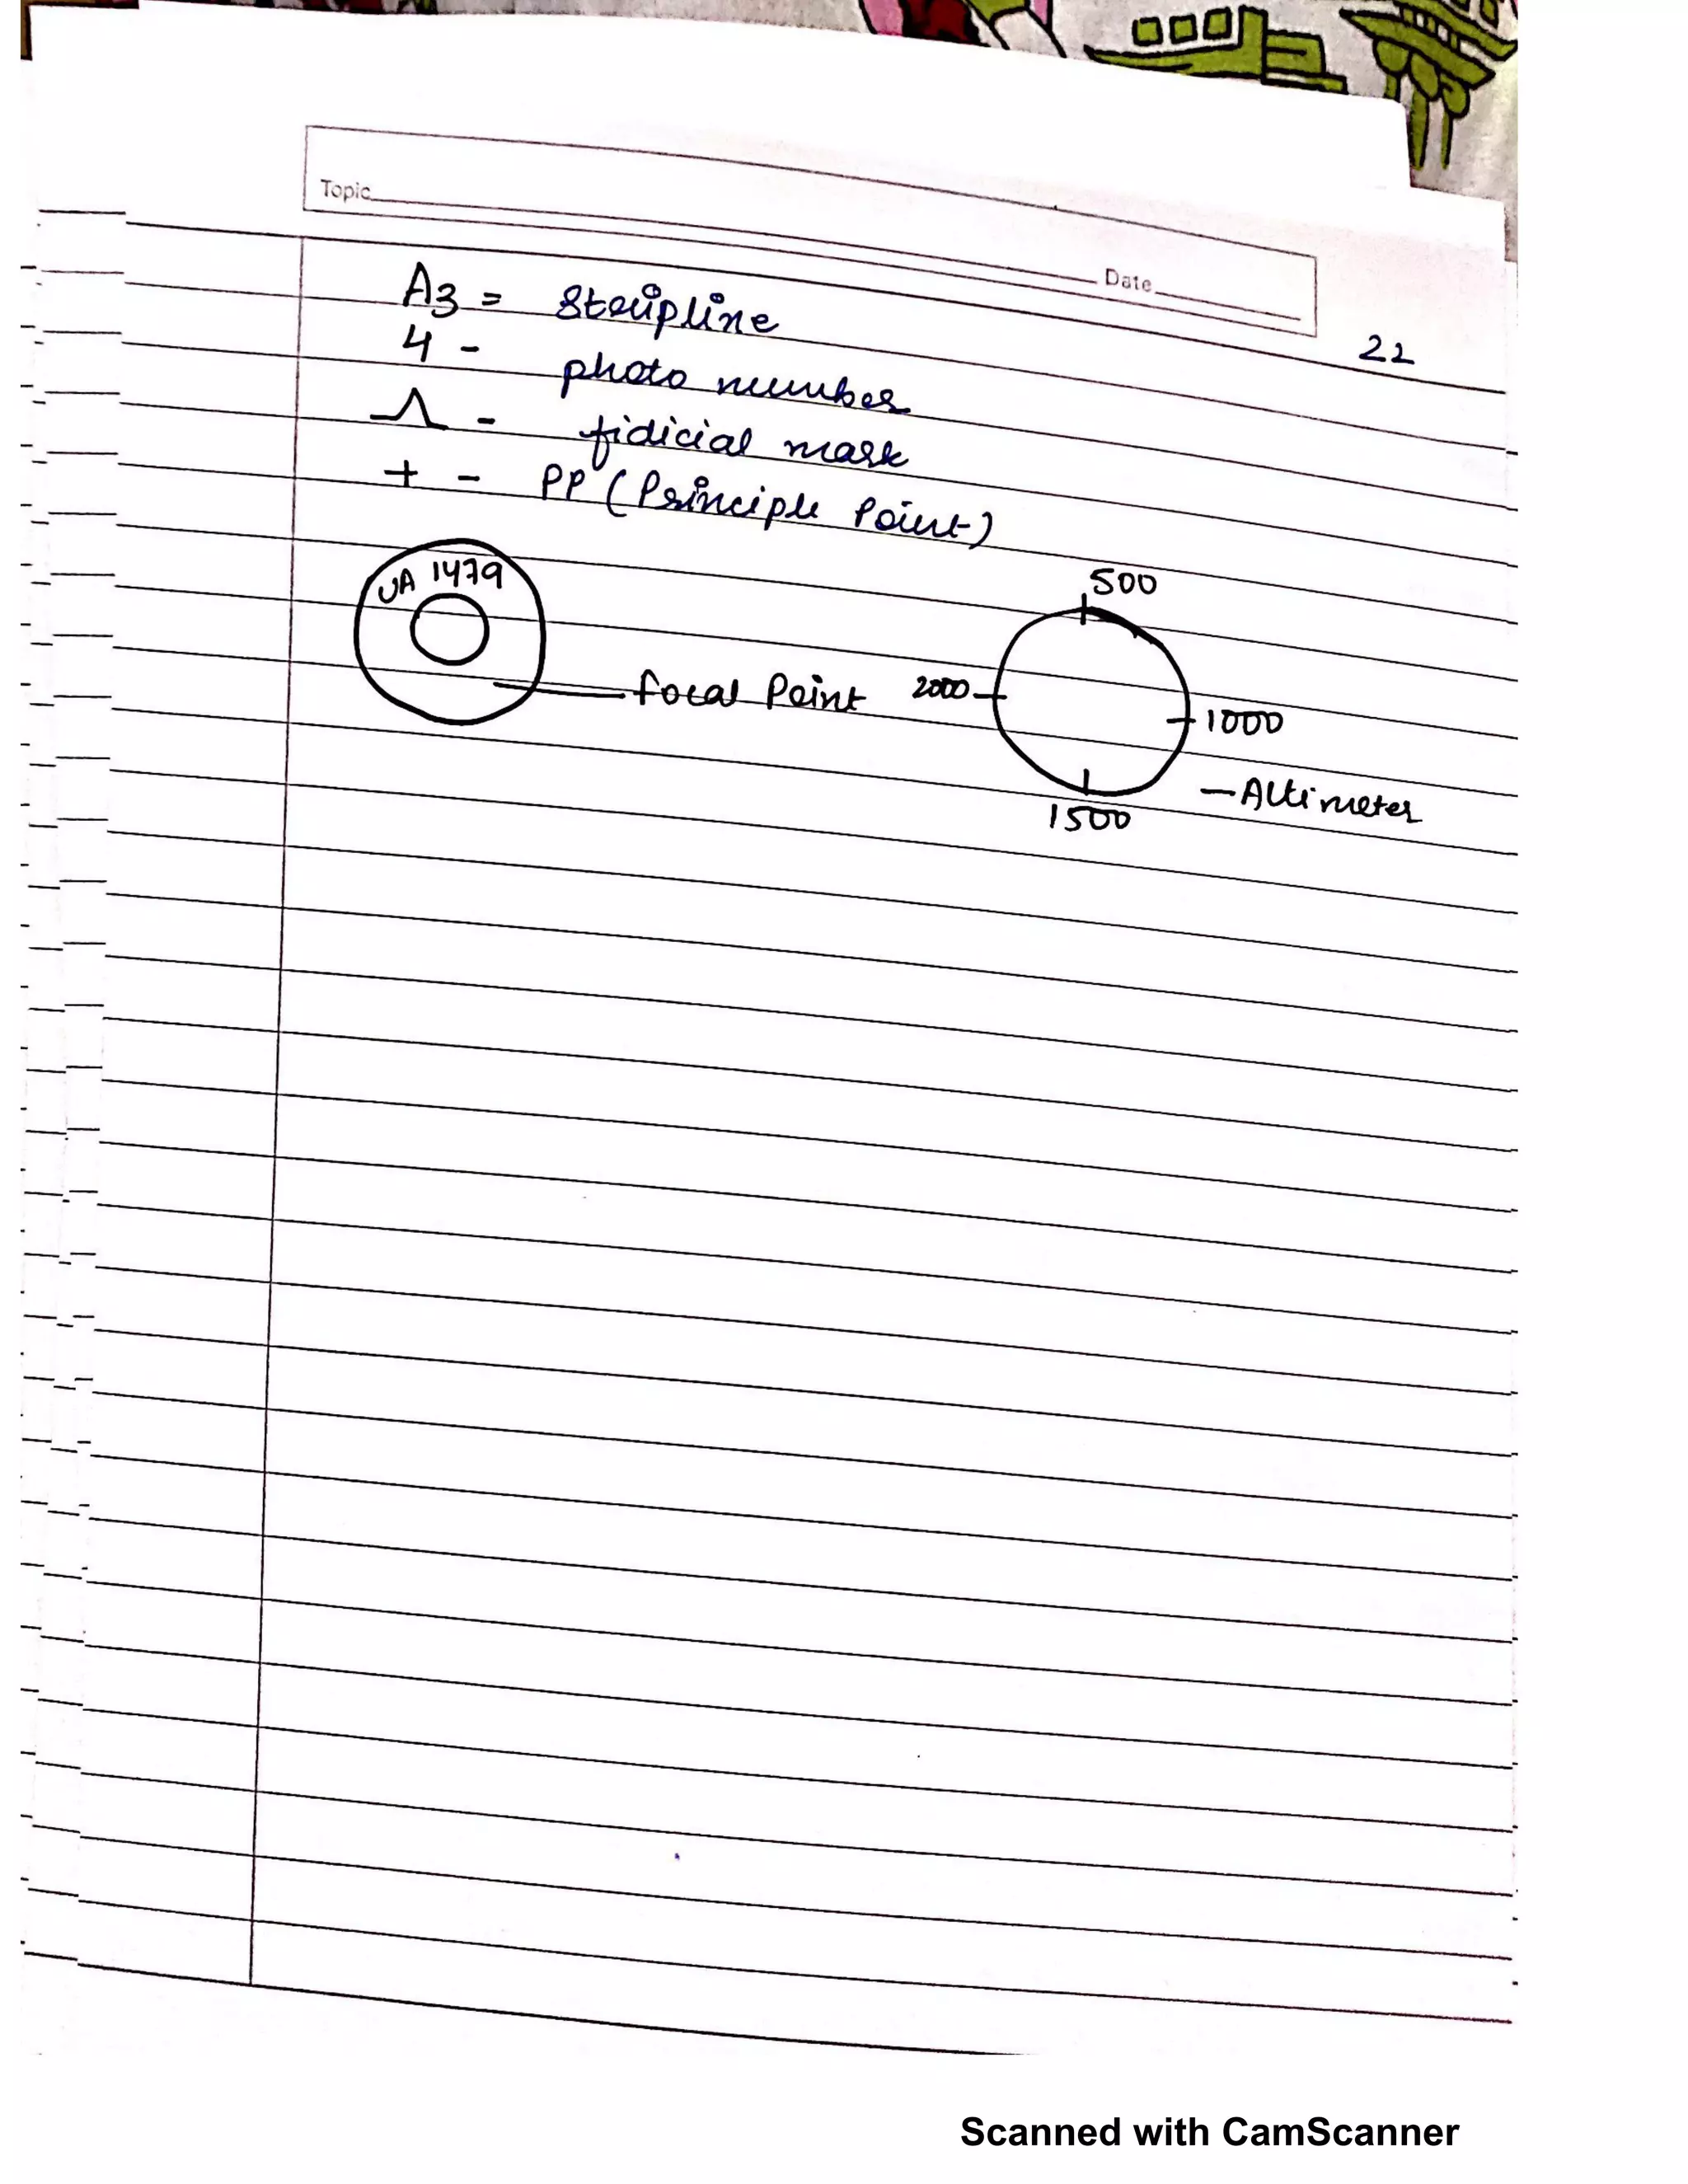 Topic Date
22
A3 = Stripline
4 - photo number
- fidicial mark
+ - PP (Principle Point)
UA 1479
focal Point
500
2000
1000
1500
- Altimeter
Scanned with CamScanner